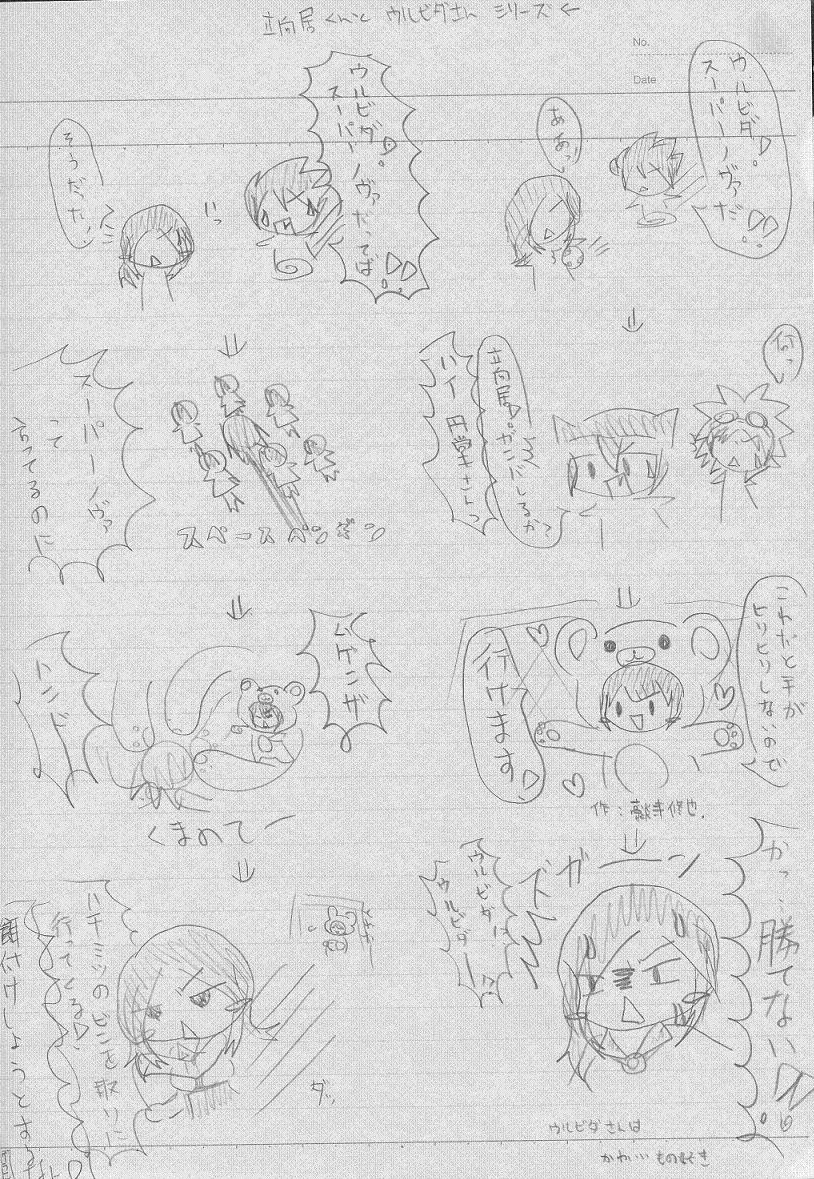 立向居くんと ウルビダさん シリーズ←
No.
Date
ウルビダ!
スーパーノヴァだ!!
ああっ
ウルビダ!
スーパーノヴァだってば!!
そうだった!
何っ
立向居!
がんばれるか?
ハイ 円堂さんっ
スペースペンギン
スーパーノヴァ
って
言ってるのに
これだと手が
ヒリヒリしないので
行けます
作:豪炎寺修也.
ムゲン・ザ
ハンド
くまのてー
かっ…勝てない!!
ズガーン
ウルビダ!?
ウルビダー!?
ハチミツのビンを取りに
行ってくる!
餌付けしようとするな!
ダッ
ウルビダさんは
かわいいもの好き